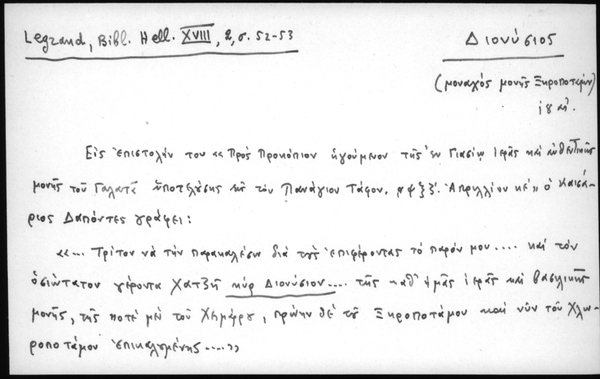 Legrand, Bibl. Hell. XVIII, 2, σ. 52-53
Διονύσιος
(μοναχός μονής Ξηροποτάμου)
ιη αἰ.
Εἰς ἐπιστολήν του «Πρός Προκόπιον ἡγούμενον τῆς ἐν Γιασίῳ ἱερᾶς καί αὐθεντικῆς
μονῆς τοῦ Γαλατᾶ ὑποτελούσης εἰς τόν Πανάγιον Τάφον, ͵αψξζ΄. Ἀπριλλίου κε΄» ὁ Καισά-
ριος Δαπόντες γράφει:
«... Τρίτον νά τήν παρακαλέσω διά τούς ἐπιφέροντας τό παρόν μου.... καί τόν
ὁσιώτατον γέροντα Χατζῆ κύρ Διονύσιον.... τῆς καθ' ἡμᾶς ἱερᾶς καί βασιλικῆς
μονῆς, τῆς ποτέ μέν τοῦ Χειμάρρου, πρώην δέ τοῦ Ξηροποτάμου καί νῦν τοῦ Χλω-
ροποτάμου ἐπικαλουμένης....»